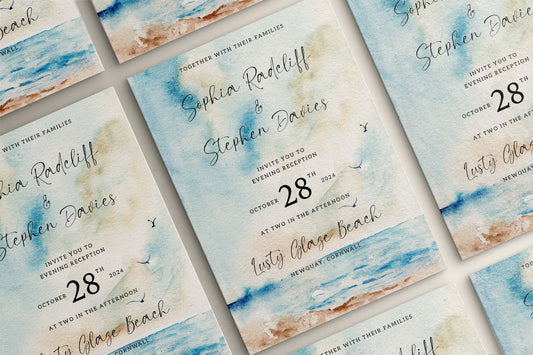 Beach
TOGETHER WITH THEIR FAMILIES
Sophia Radcliff
&
Stephen Davies
INVITE YOU TO
EVENING RECEPTION
OCTOBER 28TH 2024
AT TWO IN THE AFTERNOON
Lusty Glaze Beach
NEWQUAY, CORNWALL
WITH THEIR FAMILIES
Radcliff
&
Stephen Davies
INVITE YOU TO
EVENING RECEPTION
OCTOBER 28TH 2024
AT TWO IN THE AFTERNOON
Glaze Beach
CORNWALL
&
Stephen Davies
INVITE YOU TO
EVENING RECEPTION
OCTOBER 28TH
AT TWO IN THE AFTERNOON
Lusty Glaze
NEWQUAY, CORNWALL
TOGETHER WITH
Sophia